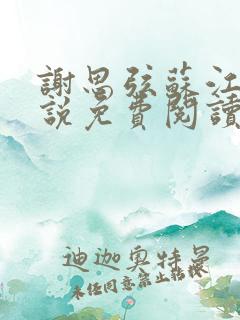 謝思弦蘇江
說免費閱讀
迪迦奧特曼
未经同意禁止转披